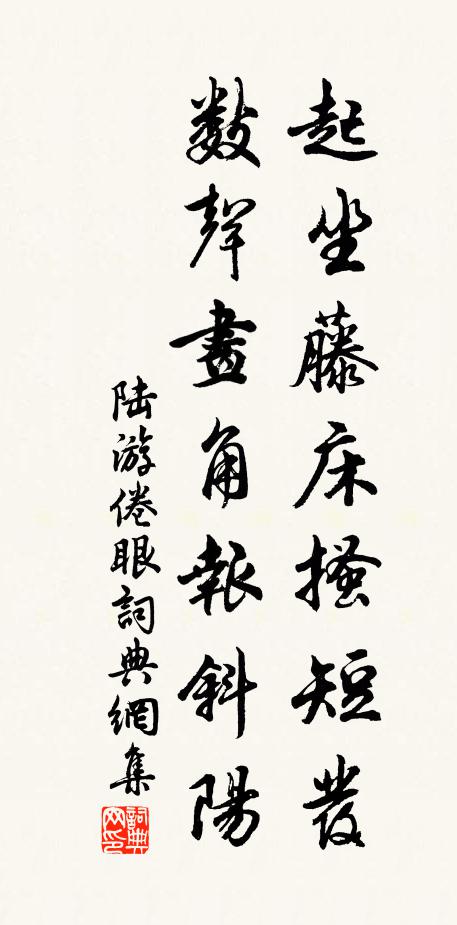 起坐藤床搔短發
數聲畫角報斜陽
陆游倦眼詞典網集
詞典网印